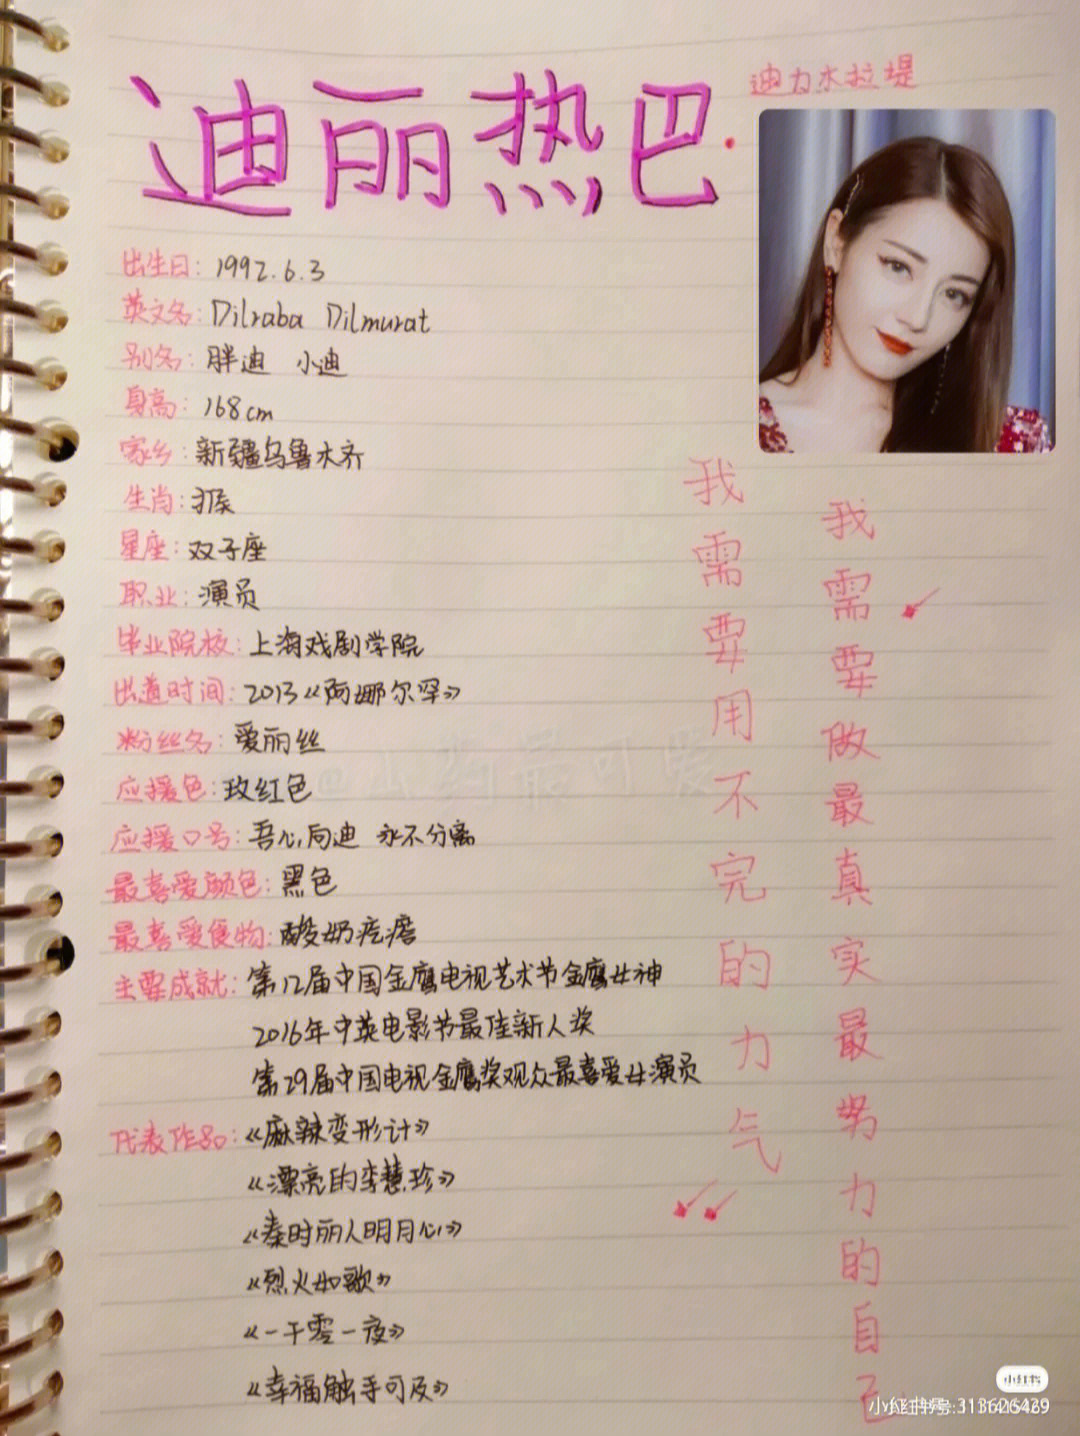 迪丽热巴·
迪力木拉提
出生日：1992.6.3
英文名：Dilraba Dilmurat
别名：胖迪 小迪
身高：168cm
家乡：新疆乌鲁木齐
生肖：猴
星座：双子座
职业：演员
毕业院校：上海戏剧学院
出道时间：2013《阿娜尔罕》
粉丝名：爱丽丝
应援色：玫红色
应援口号：吾心向迪 永不分离
最喜爱颜色：黑色
最喜爱食物：酸奶疙瘩
主要成就：第12届中国金鹰电视艺术节金鹰女神
2016年中英电影节最佳新人奖
第29届中国电视金鹰奖观众最喜爱女演员
代表作品：《麻辣变形计》
《漂亮的李慧珍》
《秦时丽人明月心》
《烈火如歌》
《一千零一夜》
《幸福触手可及》
我需要做最真实最努力的自己
我需要用不完的力气
小红书
小红书号: